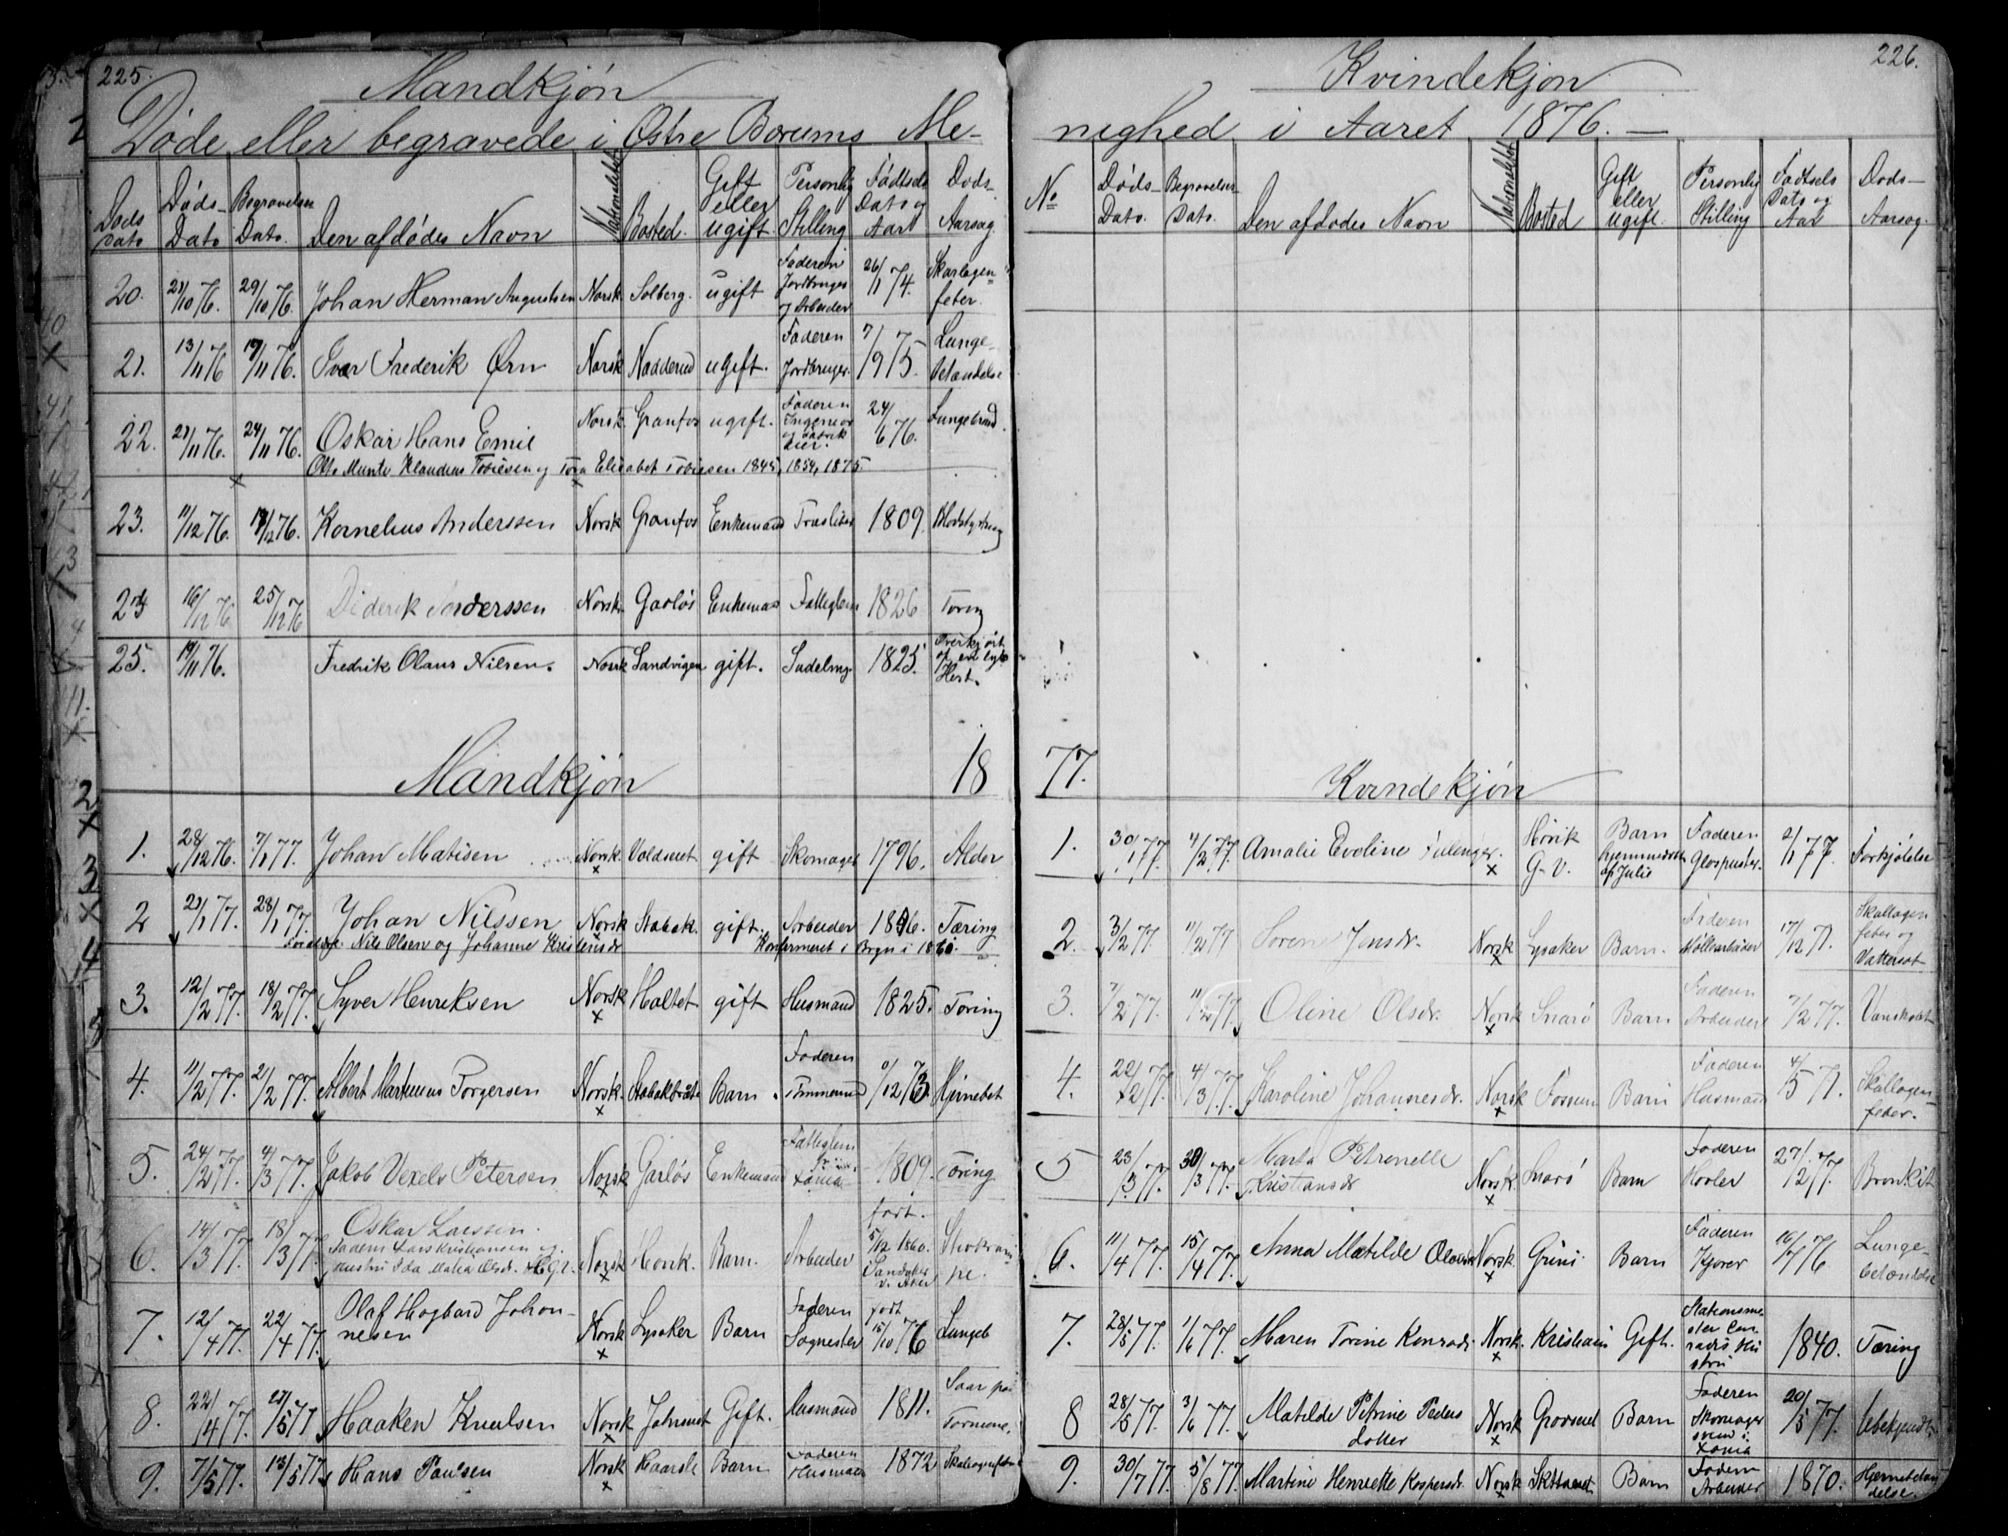 225.
Mandkjøn
Døde eller begravede i Østre Bærums Me-
Døds Dato | Døds- Dato | Begravelses Dato. | Den afdødes Navn | Nationalitet | Bosted. | Gift eller ugift | Personlig Stilling | Fødtsels Dato og Aar | Døds- Aarsag.
20. | 10/76. | 29/10 76. | Johan Herman Augustsen | Norsk | Solberg. | ugift | Faderen Jordbruger og Arbeider | 26/1 74. | Skarlagen- feber.
21. | 13/11 76 | 19/11 76. | Ivar Frederik Ørn | Norsk | Nadderud | ugift. | Faderen Jordbruger. | 7/9 75. | Lunge- betændelse
22. | 21/11 76. | 24/11 76. | Oskar Hans Emil | Norsk | Granfos | ugift. | Faderen Ingeniør og Fabrik eier. | 24/6 76. | Lungebrand.
Otto Munte Klaudius Tobiesen og Tora Elisabet Tobiesen 1845, 1854, 1875
23. | 11/12 76. | 12 76. | Kornelius Anderssen | Norsk | Granfos | Enkemand | Træsliber | 1809. | Blodstyrtning
24 | 16/12 76 | 25/12 76 | Diderik | Norsk. | Gaslös | Enkemand | Fatteglem | 1826 | Tæring
25. | 19/11 76. | Fredrik Olaus Nilsen. | Norsk | Sandvigen | gift. | Sadelmg | 1825. | Overkjørt af en Hest.
Mandkjøn 18
1. | 28/12 76. | 7/1 77. | Johan Matisen | Norsk | Voldseret | gift | Skomager | 1796. | Alder
2 | 21/1 77. | 28/1 77. | Johan Nilssen | Norsk | Stabæk. | gift. | Arbeider | 1846. | Tæring
Forældre Nils Olsen og Johanne Kristensdr Konfirmeret i Brgn i 1860
3. | 12/2 77. | 18/2 77. | Syver Henriksen | Norsk | Holtet | gift | Husmand | 1825. | Tæring
4. | 11/2 77. | 21/2 77. | Albert Martinius Torgersen | Norsk | Stabækbråte | Barn. | Faderen Tømmermand | 12 73 | Hjernebet
5. | 24/2 77. | 4/3 77. | Jakob Vexels Petersen | Norsk | Garløs | Enkemand | Fatteglem | 1809. | Tæring
6. | 14/3 77. | 18/3 77. | Oskar Larssen. Faderen Lars Kristiansen og Hustru Ida Maria Olsdr. | Norsk | Hövik. | Barn. | Arbeider | født. 5/12 1860. Sandaker v. Aker | Strokrampe.
7. | 12/4 77. | 22/4 77. | Olaf Hagbard Johannesen | Norsk | Lysaker | Barn | Faderen | født 15/10 76 | Lungeb
8. | 22/4 77. | 5 77 | Haaken Knudsen | Norsk | Gift. | Husmand | 1811. | Saar på
9. | 7/5 77. | 13/5 77. | Hans Paulsen | Norsk | Barn | Faderen Husmand | 1872
226.
Kvindekjøn
nighed i Aaret 1876.
No | Døds- Dato. | Begravelses Dato. | Den afdødes Navn | Nationalitet | Bosted | Gift eller ugift. | Personlig Stilling | Fødtsels Dato og Aar | Døds- Aarsag.
77.
Kvindekjøn
1. | 30/1 77. | 4/2 77. | Amalie Eveline | Norsk. | Hövik G.V. | Barn hjemmedøbt af Julie | Faderen Glaspuster. | 2/1 77. | Forkjølelse
2. | 3/2 77. | 11/2 77 | Soren Jensdr. | Norsk | Lysaker | Barn. | Faderen Møllearbeider | 17/12 77. | Skallagen feber og Vattersot
3. | 7/2 77. | 11/2 77. | Oline Olsdr. | Norsk | Snarø | Barn | Faderen Arbeider | 7/2 77. | Vanskabt
4. | 22/2 77. | 4/3 77. | Karoline Johannesdr. | Norsk | Fossum | Barn | Faderen Husmand | 4/5 71. | Skallagen- feber.
5 | 23/3 77. | 30/3 77. | Marta Petronelle Kristiansdr | Norsk. | Snarö | Barn | Faderen | 27/12 77. | Bronkit
6. | 11/4 77. | 15/4 77. | Anna Matilde Olausdr | Norsk. | Grini | Barn | Faderen Kjører | 16/7 76 | Lunge- betændelse
7. | 28/5 77. | 1/6 77. | Maren Torine Konradi | Norsk. | Kristiania | Gift. | Stationsme- ster Con- radis Hu- stru | 1840. | Tæring
8 | 28/5 77. | 3/6 77. | Matilde Petrine Peders dotter | Norsk | Barn | Faderen Skomager svend i Xania | 20/5 77. | Ubekjendt
9. | 30/7 77. | 5/8 77. | Martine Henriette Kaspersdr. | Norsk | Barn | Faderen Arbeider | 1870. | Hjernebetændelse.